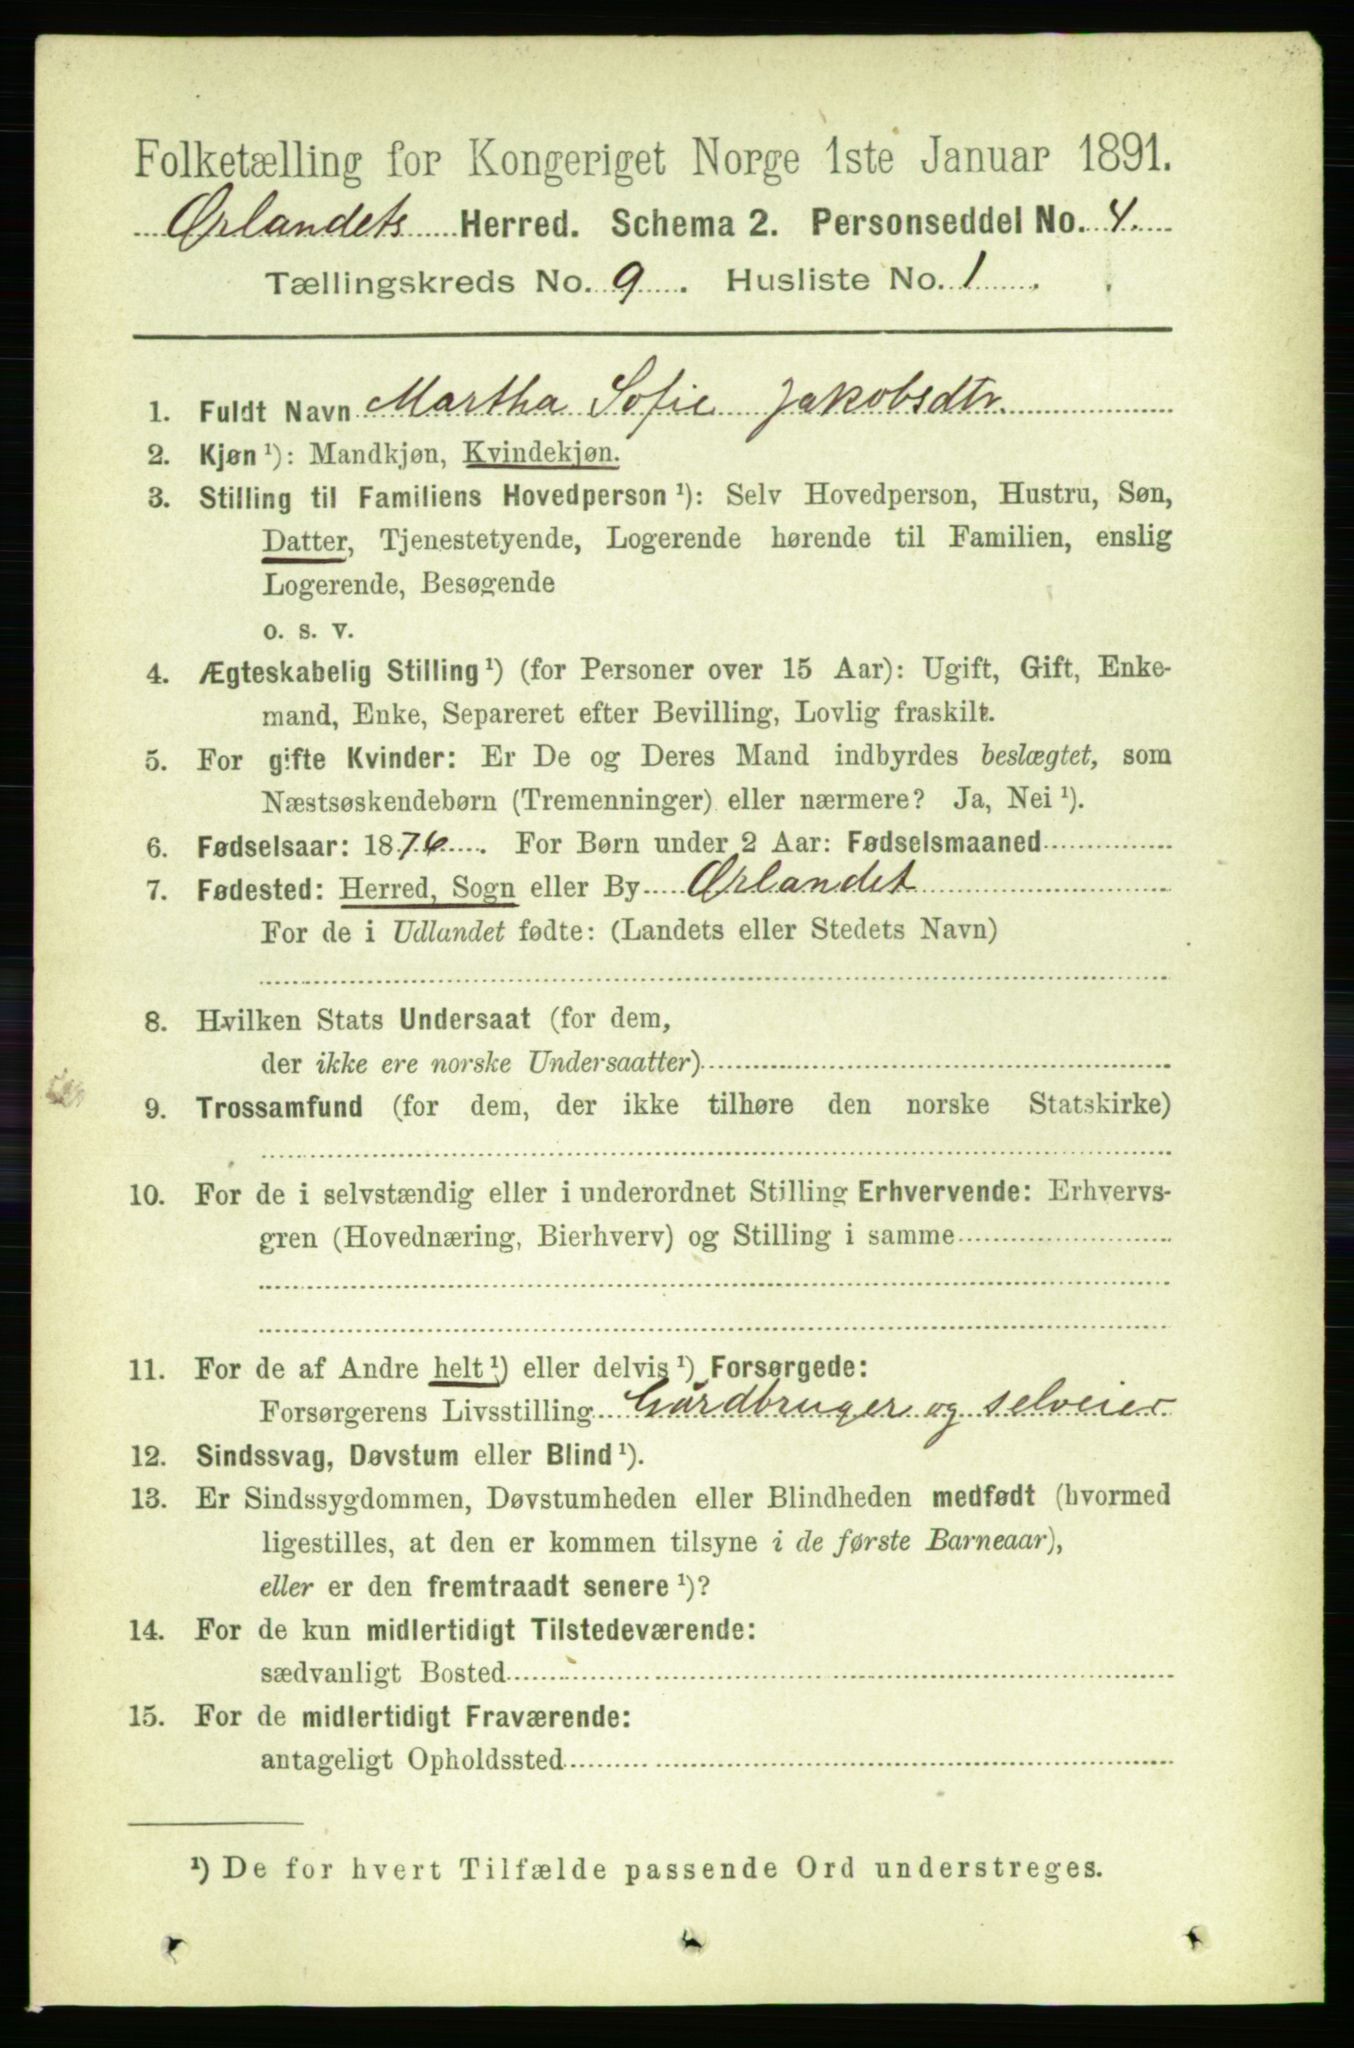 Folketælling for Kongeriget Norge 1ste Januar 1891.
Ørlandets Herred. Schema 2. Personseddel No. 4.
Tællingskreds No. 9. Husliste No. 1.
1. Fuldt Navn Martha Sofie Jakobsdtr.
2. Kjøn ¹): Mandkjøn, Kvindekjøn.
3. Stilling til Familiens Hovedperson ¹): Selv Hovedperson, Hustru, Søn,
Datter, Tjenestetyende, Logerende hørende til Familien, enslig
Logerende, Besøgende
o. s. v.
4. Ægteskabelig Stilling ¹) (for Personer over 15 Aar): Ugift, Gift, Enke-
mand, Enke, Separeret efter Bevilling, Lovlig fraskilt.
5. For gifte Kvinder: Er De og Deres Mand indbyrdes beslægtet, som
Næstsøskendebørn (Tremenninger) eller nærmere? Ja, Nei ¹).
6. Fødselsaar: 1876. For Børn under 2 Aar: Fødselsmaaned
7. Fødested: Herred, Sogn eller By Ørlandet
For de i Udlandet fødte: (Landets eller Stedets Navn)
8. Hvilken Stats Undersaat (for dem,
der ikke ere norske Undersaatter)
9. Trossamfund (for dem, der ikke tilhøre den norske Statskirke)
10. For de i selvstændig eller i underordnet Stilling Erhvervende: Erhvervs-
gren (Hovednæring, Bierhverv) og Stilling i samme
11. For de af Andre helt ¹) eller delvis ¹) Forsørgede:
Forsørgerens Livsstilling Gårdbruger og selveier
12. Sindssvag, Døvstum eller Blind ¹).
13. Er Sindssygdommen, Døvstumheden eller Blindheden medfødt (hvormed
ligestilles, at den er kommen tilsyne i de første Barneaar),
eller er den fremtraadt senere ¹)?
14. For de kun midlertidigt Tilstedeværende:
sædvanligt Bosted
15. For de midlertidigt Fraværende:
antageligt Opholdssted
¹) De for hvert Tilfælde passende Ord understreges.